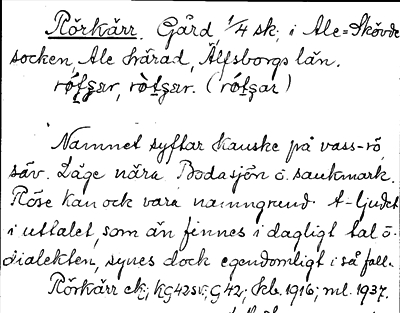 Rörkärr. Gård 1/4 sk; i Ale=Skövde
socken, Ale härad, Älfsborgs län.
Namnet syftar kanske på vass-rö,
säv. Läge nära Bodasjön o. sankmark.
Röse kan ock vara namngrund. t-ljudet
i uttalet, som än finnes i dagligt tal o.
dialekten, synes dock egendomligt i så fall.
Rörkärr ek; kG42sv; G42; Skb. 1916; ml. 1937.